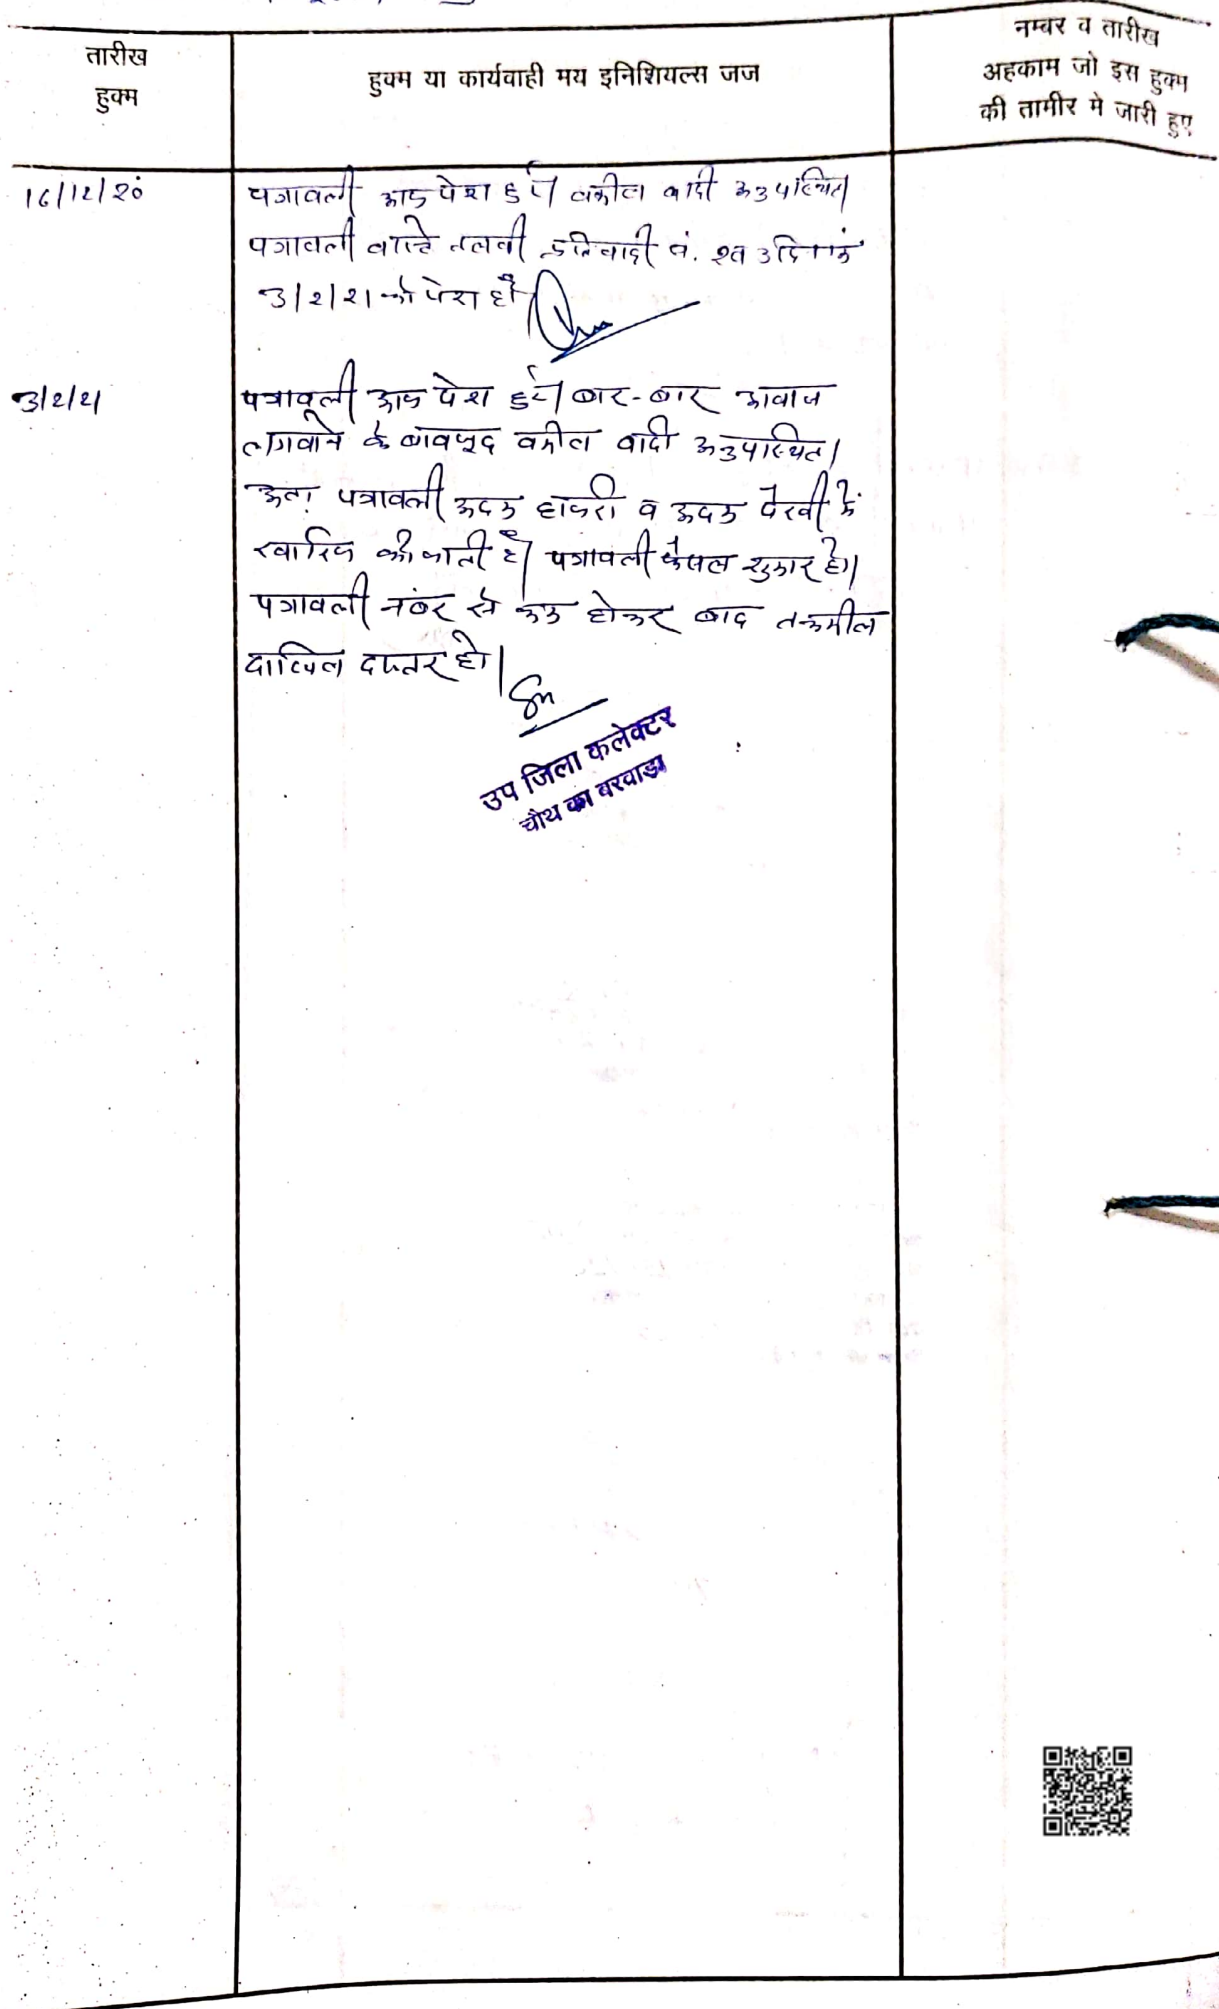 तारीख
हुक्म
हुक्म या कार्यवाही मय इनिशियल्स जज
नम्बर व तारीख
अहकाम जो इस हुक्म
की तामीर मे जारी हुए
16/12/20
पत्रावली आज पेश हुई। वकील वादी अनुपस्थित।
पत्रावली वास्ते तलवी प्रतिवादी नं. 2व 3 दिनांक
3/2/21 को पेश हो।
3/2/21
पत्रावली आज पेश हुई। बार-बार आवाज
लगवाने के बावजूद वकील वादी अनुपस्थित।
अतः पत्रावली अदम हाजरी व अदम पैरवी में
खारिज की जाती है। पत्रावली फैसल शुमार हो।
पत्रावली नंबर से कम होकर बाद तकमील
दाखिल दफ्तर हो।
उप जिला कलेक्टर
चौथ का बरवाडा